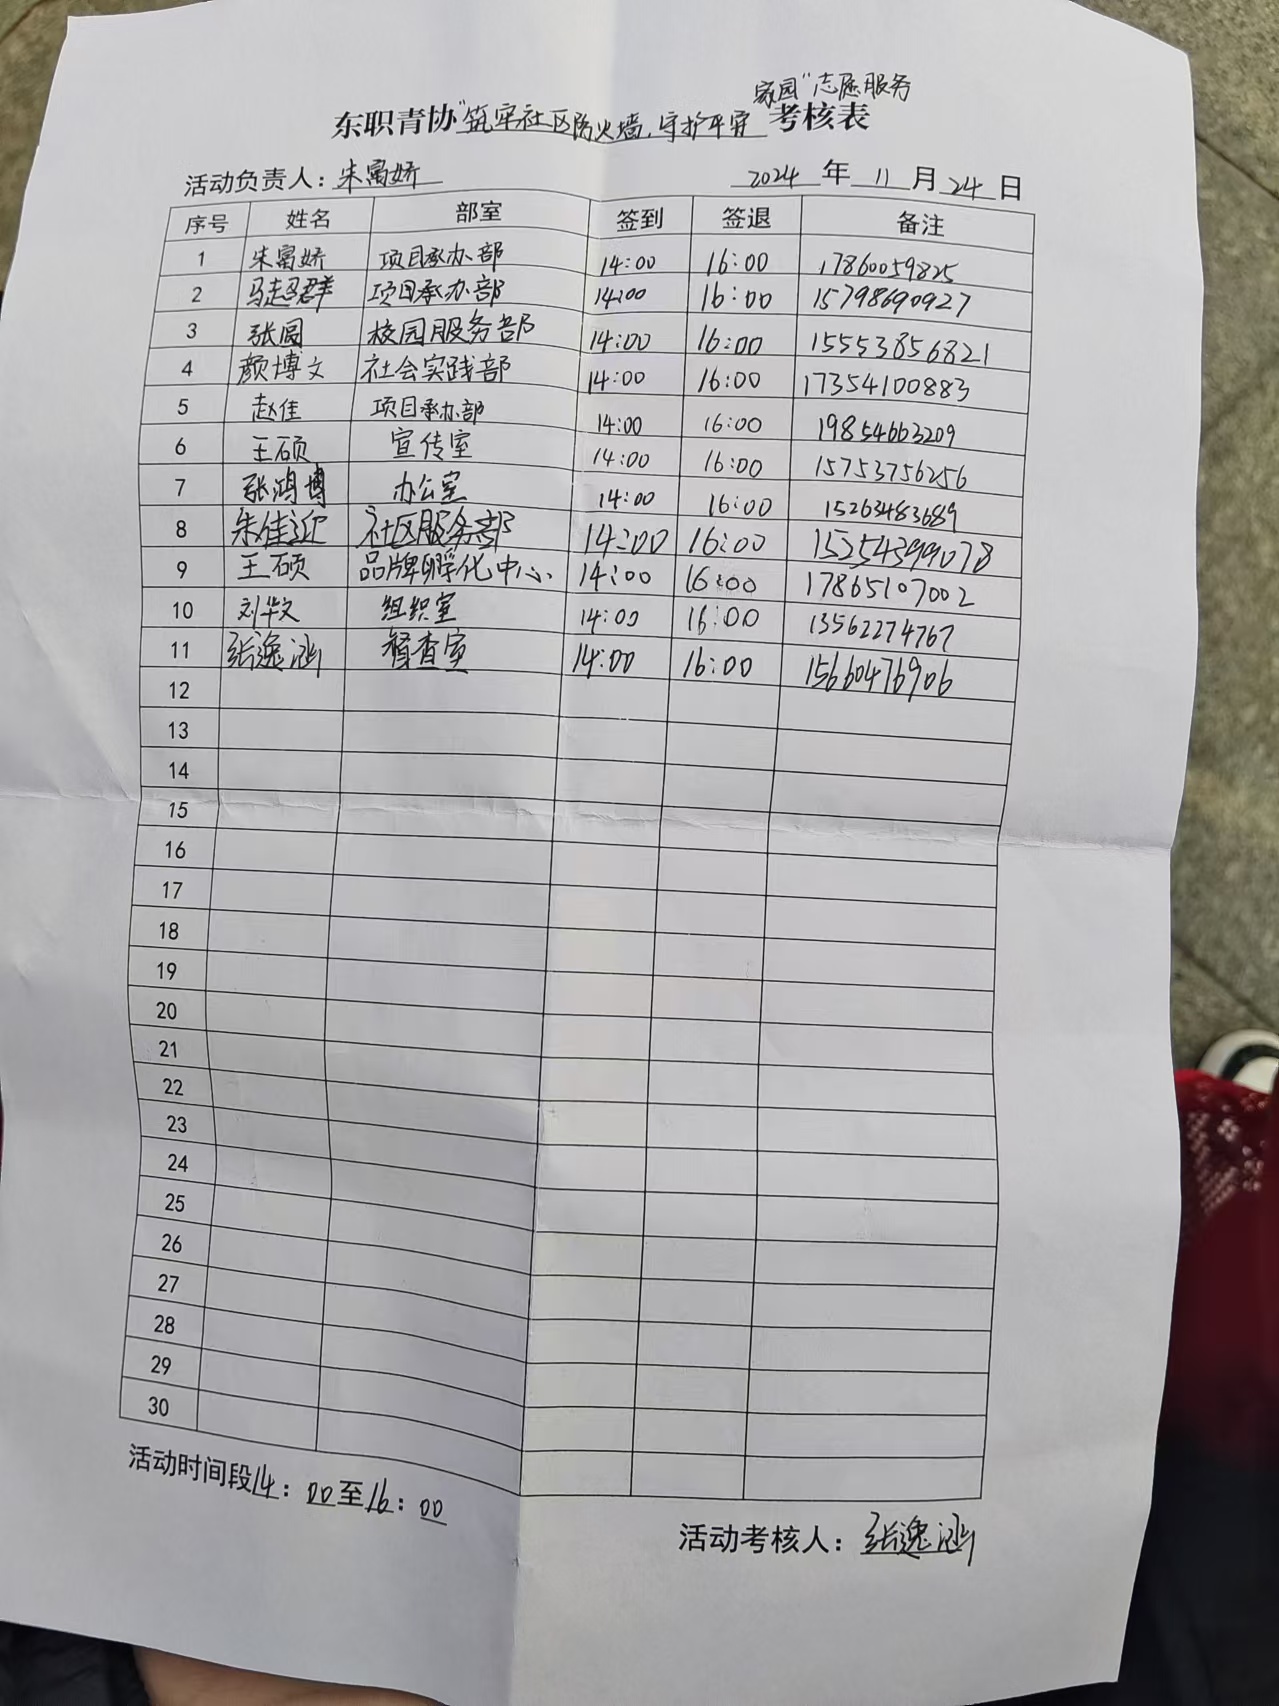 家园"志愿服务
东职青协"筑牢社区防火墙,守护平安 考核表
活动负责人:朱富娇 2024 年 11 月 24 日
序号 姓名 部室 签到 签退 备注
1 朱富娇 项目承办部 14:00 16:00 17860059825
2 马赵群 项目承办部 14:00 16:00 15798690927
3 张圆 校园服务部 14:00 16:00 15553856821
4 颜博文 社会实践部 14:00 16:00 17354100883
5 赵佳 项目承办部 14:00 16:00 19854663209
6 王硕 宣传室 14:00 16:00 15753756256
7 张鸿博 办公室 14:00 16:00 15263483689
8 朱佳近 社区服务部 14:00 16:00 15254399078
9 王硕 品牌孵化中心 14:00 16:00 17865107002
10 刘华文 组织室 14:00 16:00 13562274767
11 张逸涵 督查室 14:00 16:00 15660476906
12
13
14
15
16
17
18
19
20
21
22
23
24
25
26
27
28
29
30
活动时间段14:00至16:00
活动考核人:张逸涵